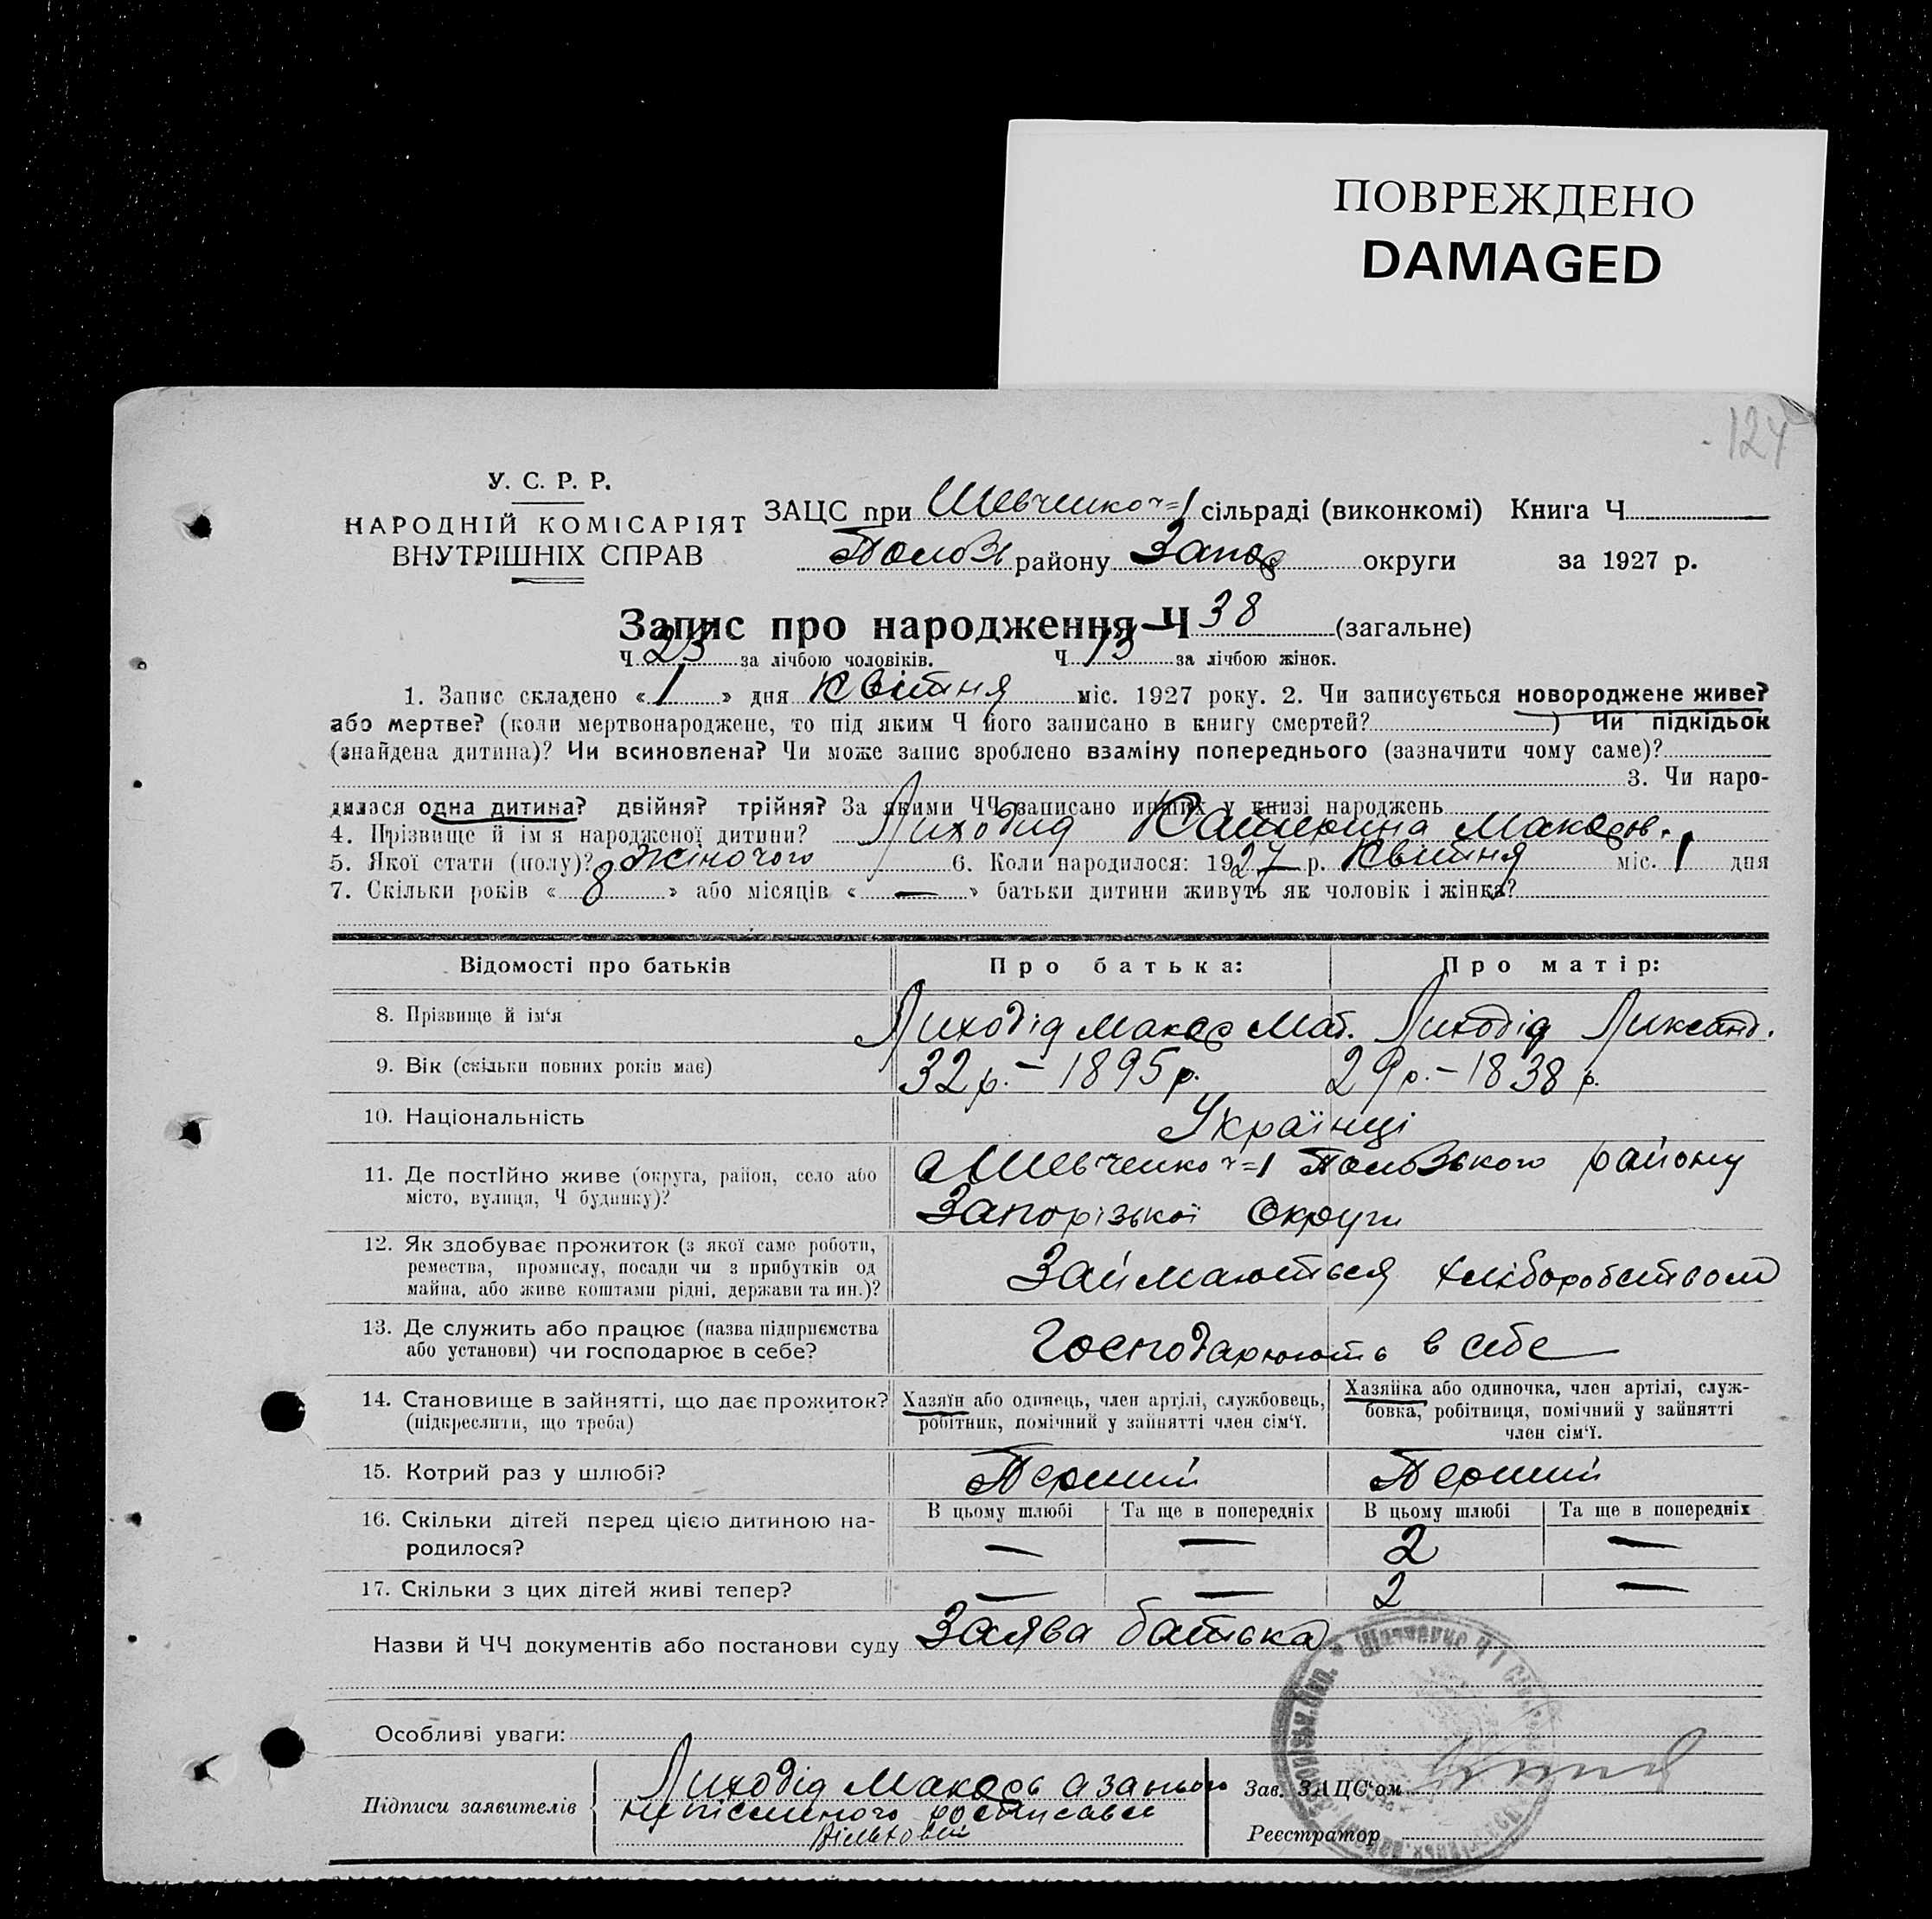 ПОВРЕЖДЕНО
DAMAGED
124
У. С. Р. Р.
НАРОДНІЙ КОМІСАРІЯТ
ВНУТРІШНІХ СПРАВ
ЗАЦС при Шевченко ч=1 сільраді (виконкомі) Книга Ч
Полозь району Запор округи за 1927 р.
Запис про народження Ч 38 (загальне)
Ч 25 за лічбою чоловіків. Ч 13 за лічбою жінок.
1. Запис складено «1» дня Квітня міс. 1927 року. 2. Чи записується новороджене живе?
або мертве? (коли мертвонароджене, то під яким Ч його записано в книгу смертей?) Чи підкідьок
(знайдена дитина)? Чи всиновлена? Чи може запис зроблено взаміну попереднього (зазначити чому саме)?
3. Чи наро-
дилася одна дитина? двійня? трійня? За якими ЧЧ записано инших у книзі народжень
4. Прізвище й ім'я народженої дитини? Лиходід Катерина Макаров.
5. Якої стати (полу)? жіночого 6. Коли народилося: 1927 р. Квітня міс. 1 дня
7. Скільки років «8» або місяців «—» батьки дитини живуть як чоловік і жінка?
Відомості про батьків Про батька: Про матір:
8. Прізвище й ім'я Лиходід Макар Мат. Лиходід Ликсанд.
9. Вік (скільки повних років має) 32 р. – 1895 р. 29 р. – 1838 р.
10. Національність Українці
11. Де постійно живе (округа, район, село або
місто, вулиця, Ч будинку)?
с Шевченко ч=1 Полозького району
Запорізької Округи
12. Як здобуває прожиток (з якої саме роботи,
ремества, промислу, посади чи з прибутків од
майна, або живе коштами рідні, держави та ин.)?
Займаються хліборобством
13. Де служить або працює (назва підприємства
або установи) чи господарює в себе?
Господарюють в себе
14. Становище в зайнятті, що дає прожиток?
(підкреслити, що треба)
Хазяїн або одинець, член артілі, службовець,
робітник, помічний у зайнятті член сім'ї.
Хазяйка або одиночка, член артілі, служ-
бовка, робітниця, помічний у зайнятті
член сім'ї.
15. Котрий раз у шлюбі? Перший Перший
16. Скільки дітей перед цією дитиною на-
родилося?
В цьому шлюбі Та ще в попередніх В цьому шлюбі Та ще в попередніх
— — 2 —
17. Скільки з цих дітей живі тепер? — — 2 —
Назви й ЧЧ документів або постанови суду Заява батька
Особливі уваги:
Підписи заявителів
Лиходід Макарь а за нього
неписьменого росписався
Зав. ЗАЦС'ом
Реєстратор